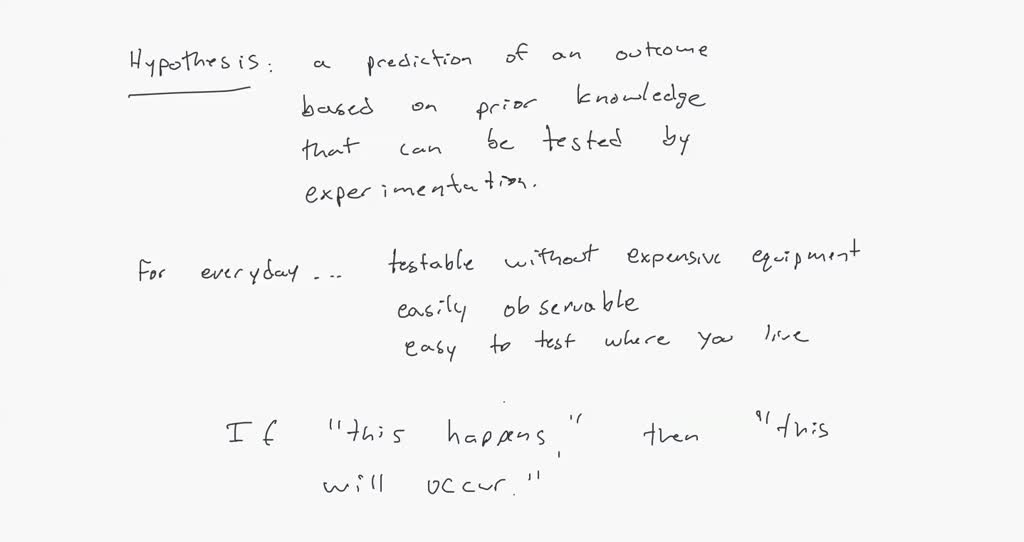 Hypothesis: a prediction of an outcome
based on prior knowledge
that can be tested by
experimentation.
For everyday... testable without expensive equipment
easily observable
easy to test where you live
If "this happens," then "this
will occur."